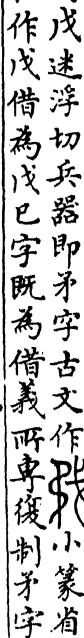 戊迷浮切兵器即矛字古文作小篆省
作戊借為戊巳字既為借義所專復制矛字